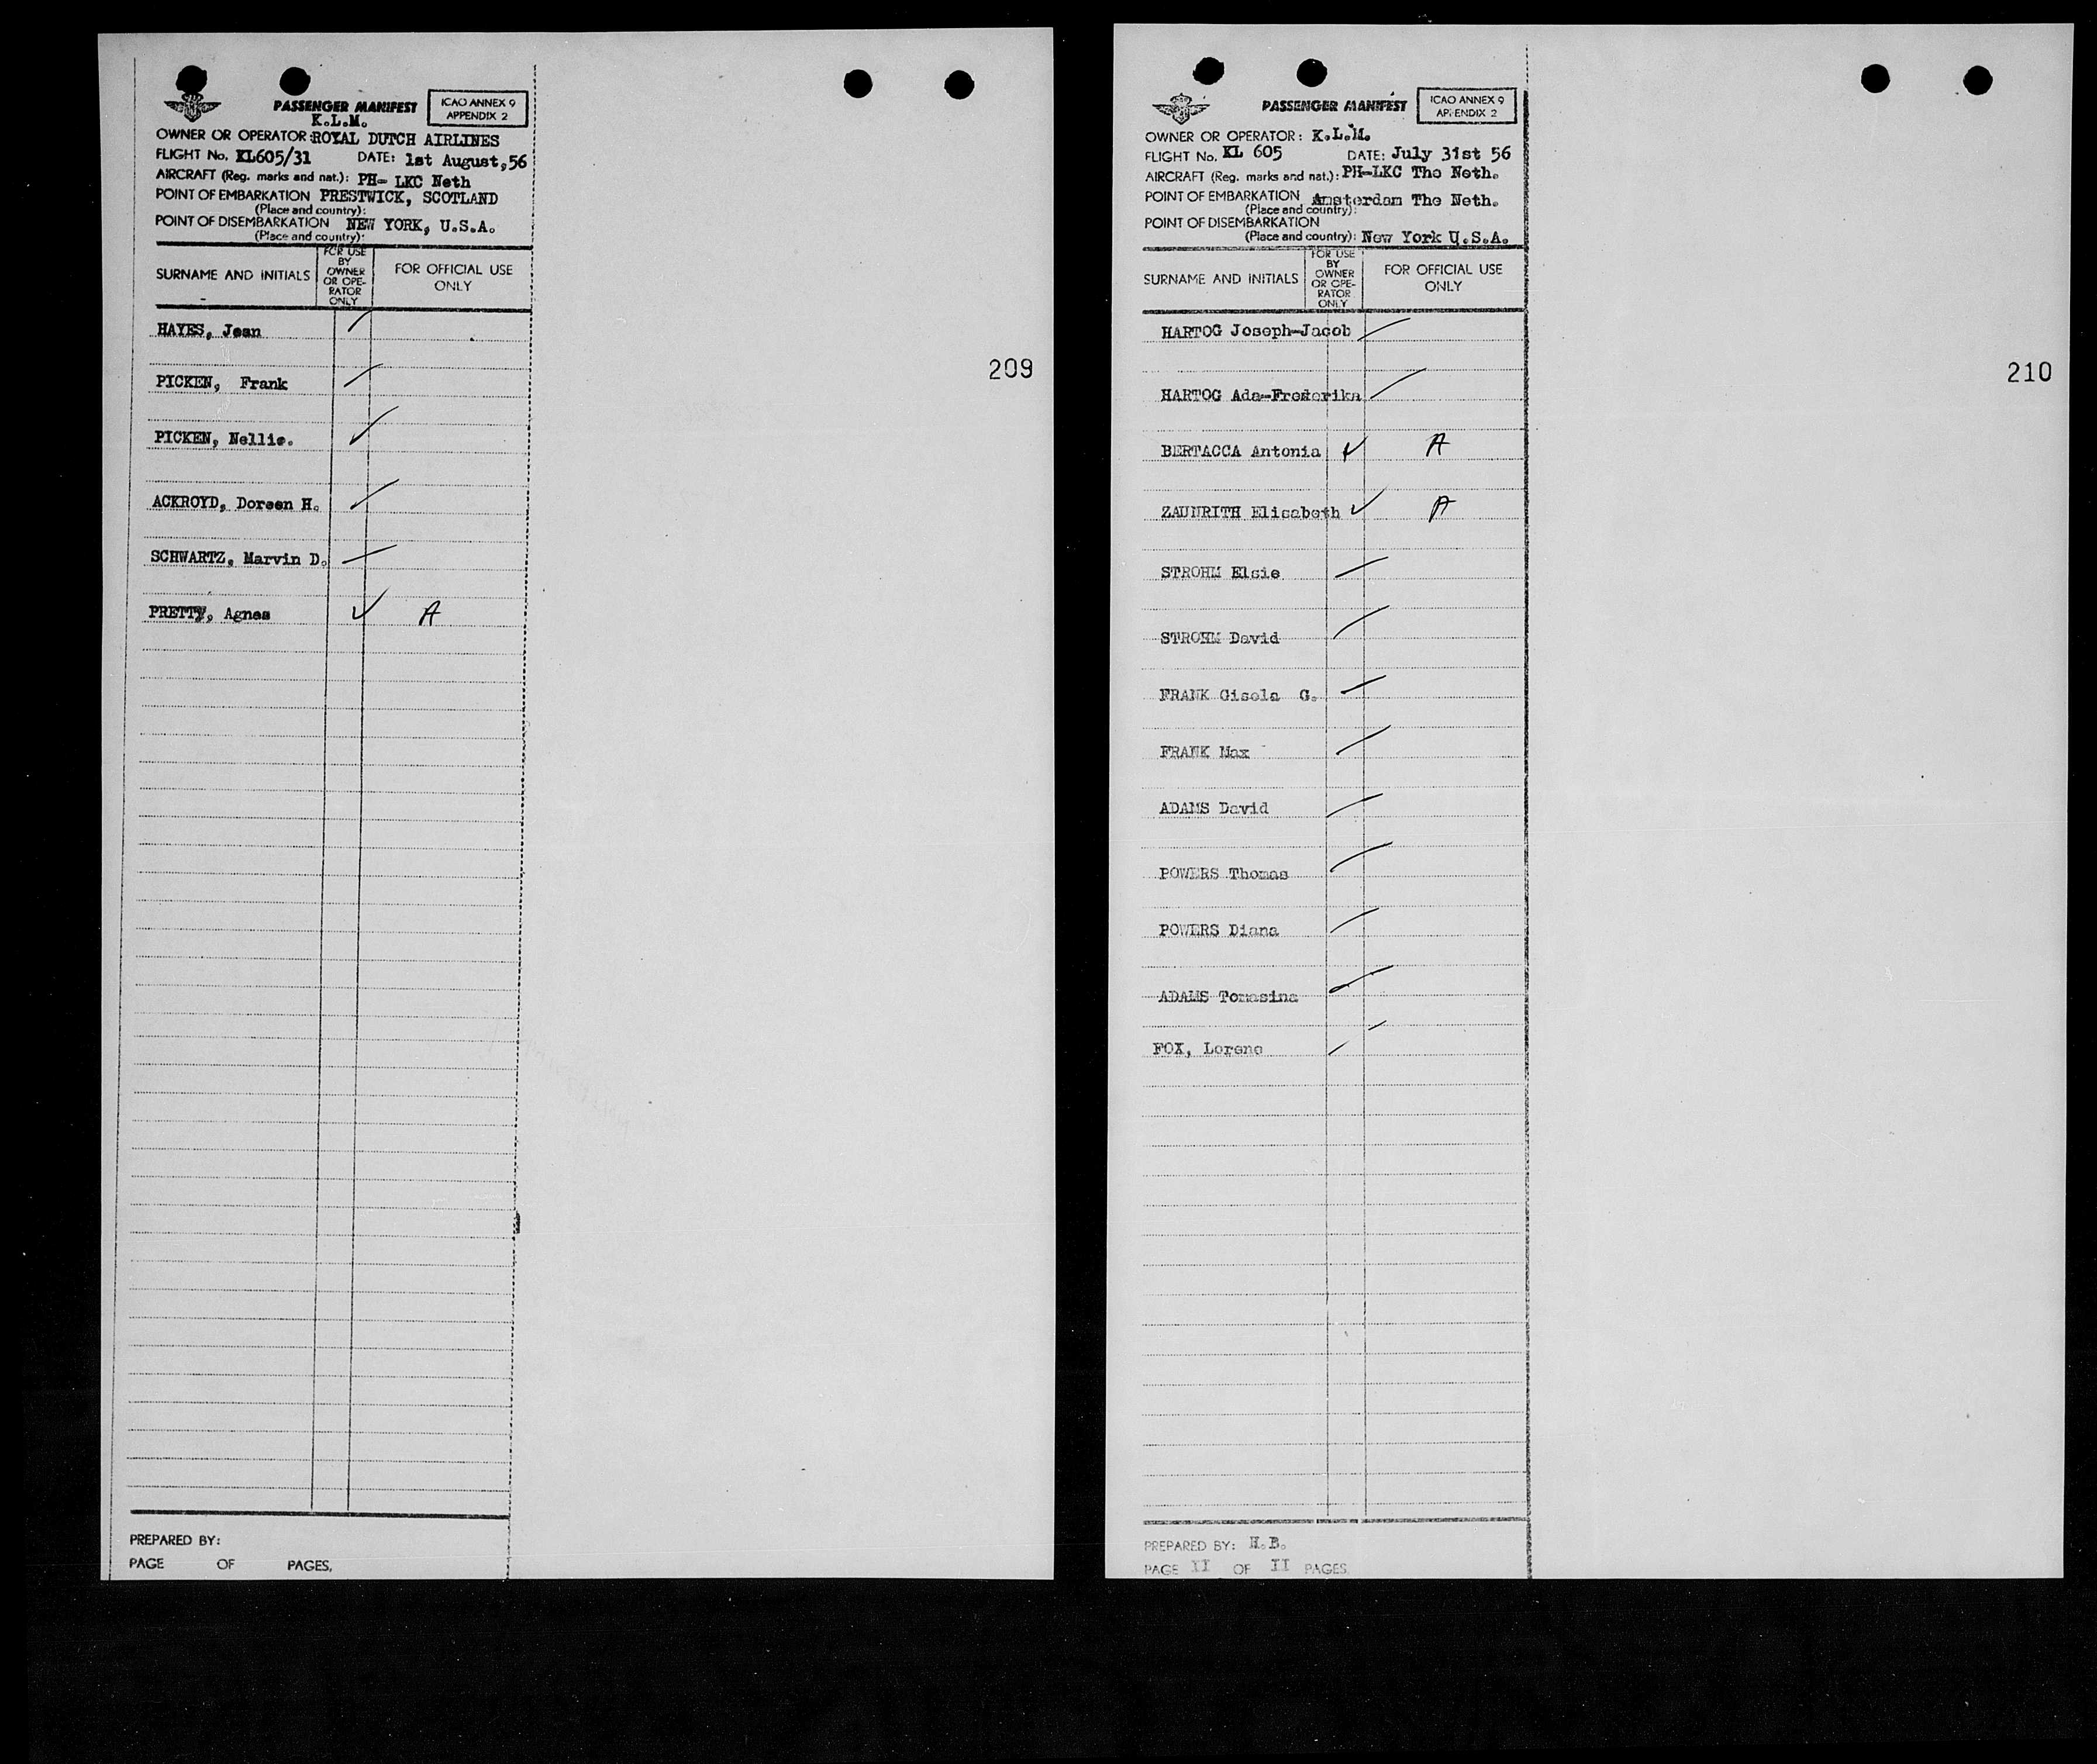 PASSENGER MANIFEST
ICAO ANNEX 9
APPENDIX 2
K.L.M.
OWNER OR OPERATOR: ROYAL DUTCH AIRLINES
FLIGHT No. KL605/31 DATE: 1st August, 56
AIRCRAFT (Reg. marks and nat.): PH- LKC Neth
POINT OF EMBARKATION PRESTWICK, SCOTLAND
(Place and country):
POINT OF DISEMBARKATION NEW YORK, U.S.A.
(Place and country):
SURNAME AND INITIALS
FOR USE
BY
OWNER
OR OPE-
RATOR
ONLY
FOR OFFICIAL USE
ONLY
HAYES, Jean
209
PICKEN, Frank
PICKEN, Nellie.
ACKROYD, Doreen H.
SCHWARTZ, Marvin D.
PRETTY, Agnes A
PREPARED BY:
PAGE OF PAGES.
PASSENGER MANIFEST
ICAO ANNEX 9
APPENDIX 2
OWNER OR OPERATOR: K.L.M.
FLIGHT No. KL 605 DATE: July 31st 56
AIRCRAFT (Reg. marks and nat.): PH-LKC The Neth.
POINT OF EMBARKATION Amsterdam The Neth.
(Place and country):
POINT OF DISEMBARKATION
(Place and country): New York U.S.A.
SURNAME AND INITIALS
FOR USE
BY
OWNER
OR OPE-
RATOR
ONLY
FOR OFFICIAL USE
ONLY
HARTOG Joseph-Jacob
210
HARTOG Ada-Frederika
BERTACCA Antonia A
ZAUNRITH Elisabeth A
STROHM Elsie
STROHM David
FRANK Gisela G.
FRANK Max
ADAMS David
POWERS Thomas
POWERS Diana
ADAMS Tomasina
FOX, Lorene
PREPARED BY: H.B.
PAGE II OF II PAGES.